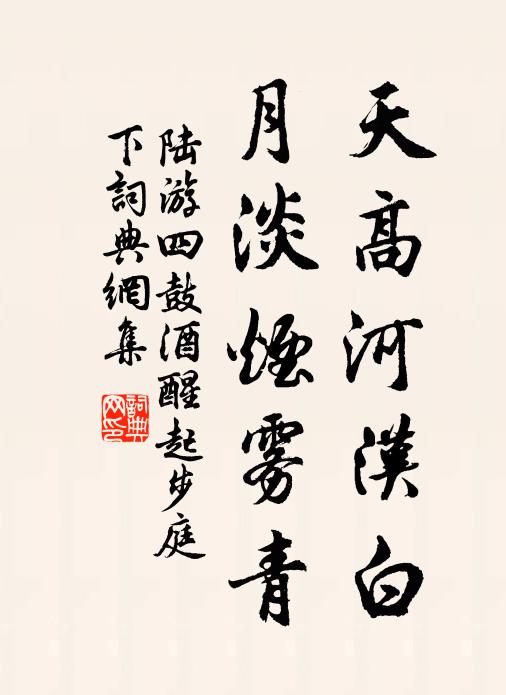 天高河漢白
月淡煙雾青
陆游四鼓酒醒起步庭
下詞典網集
詞典
网印